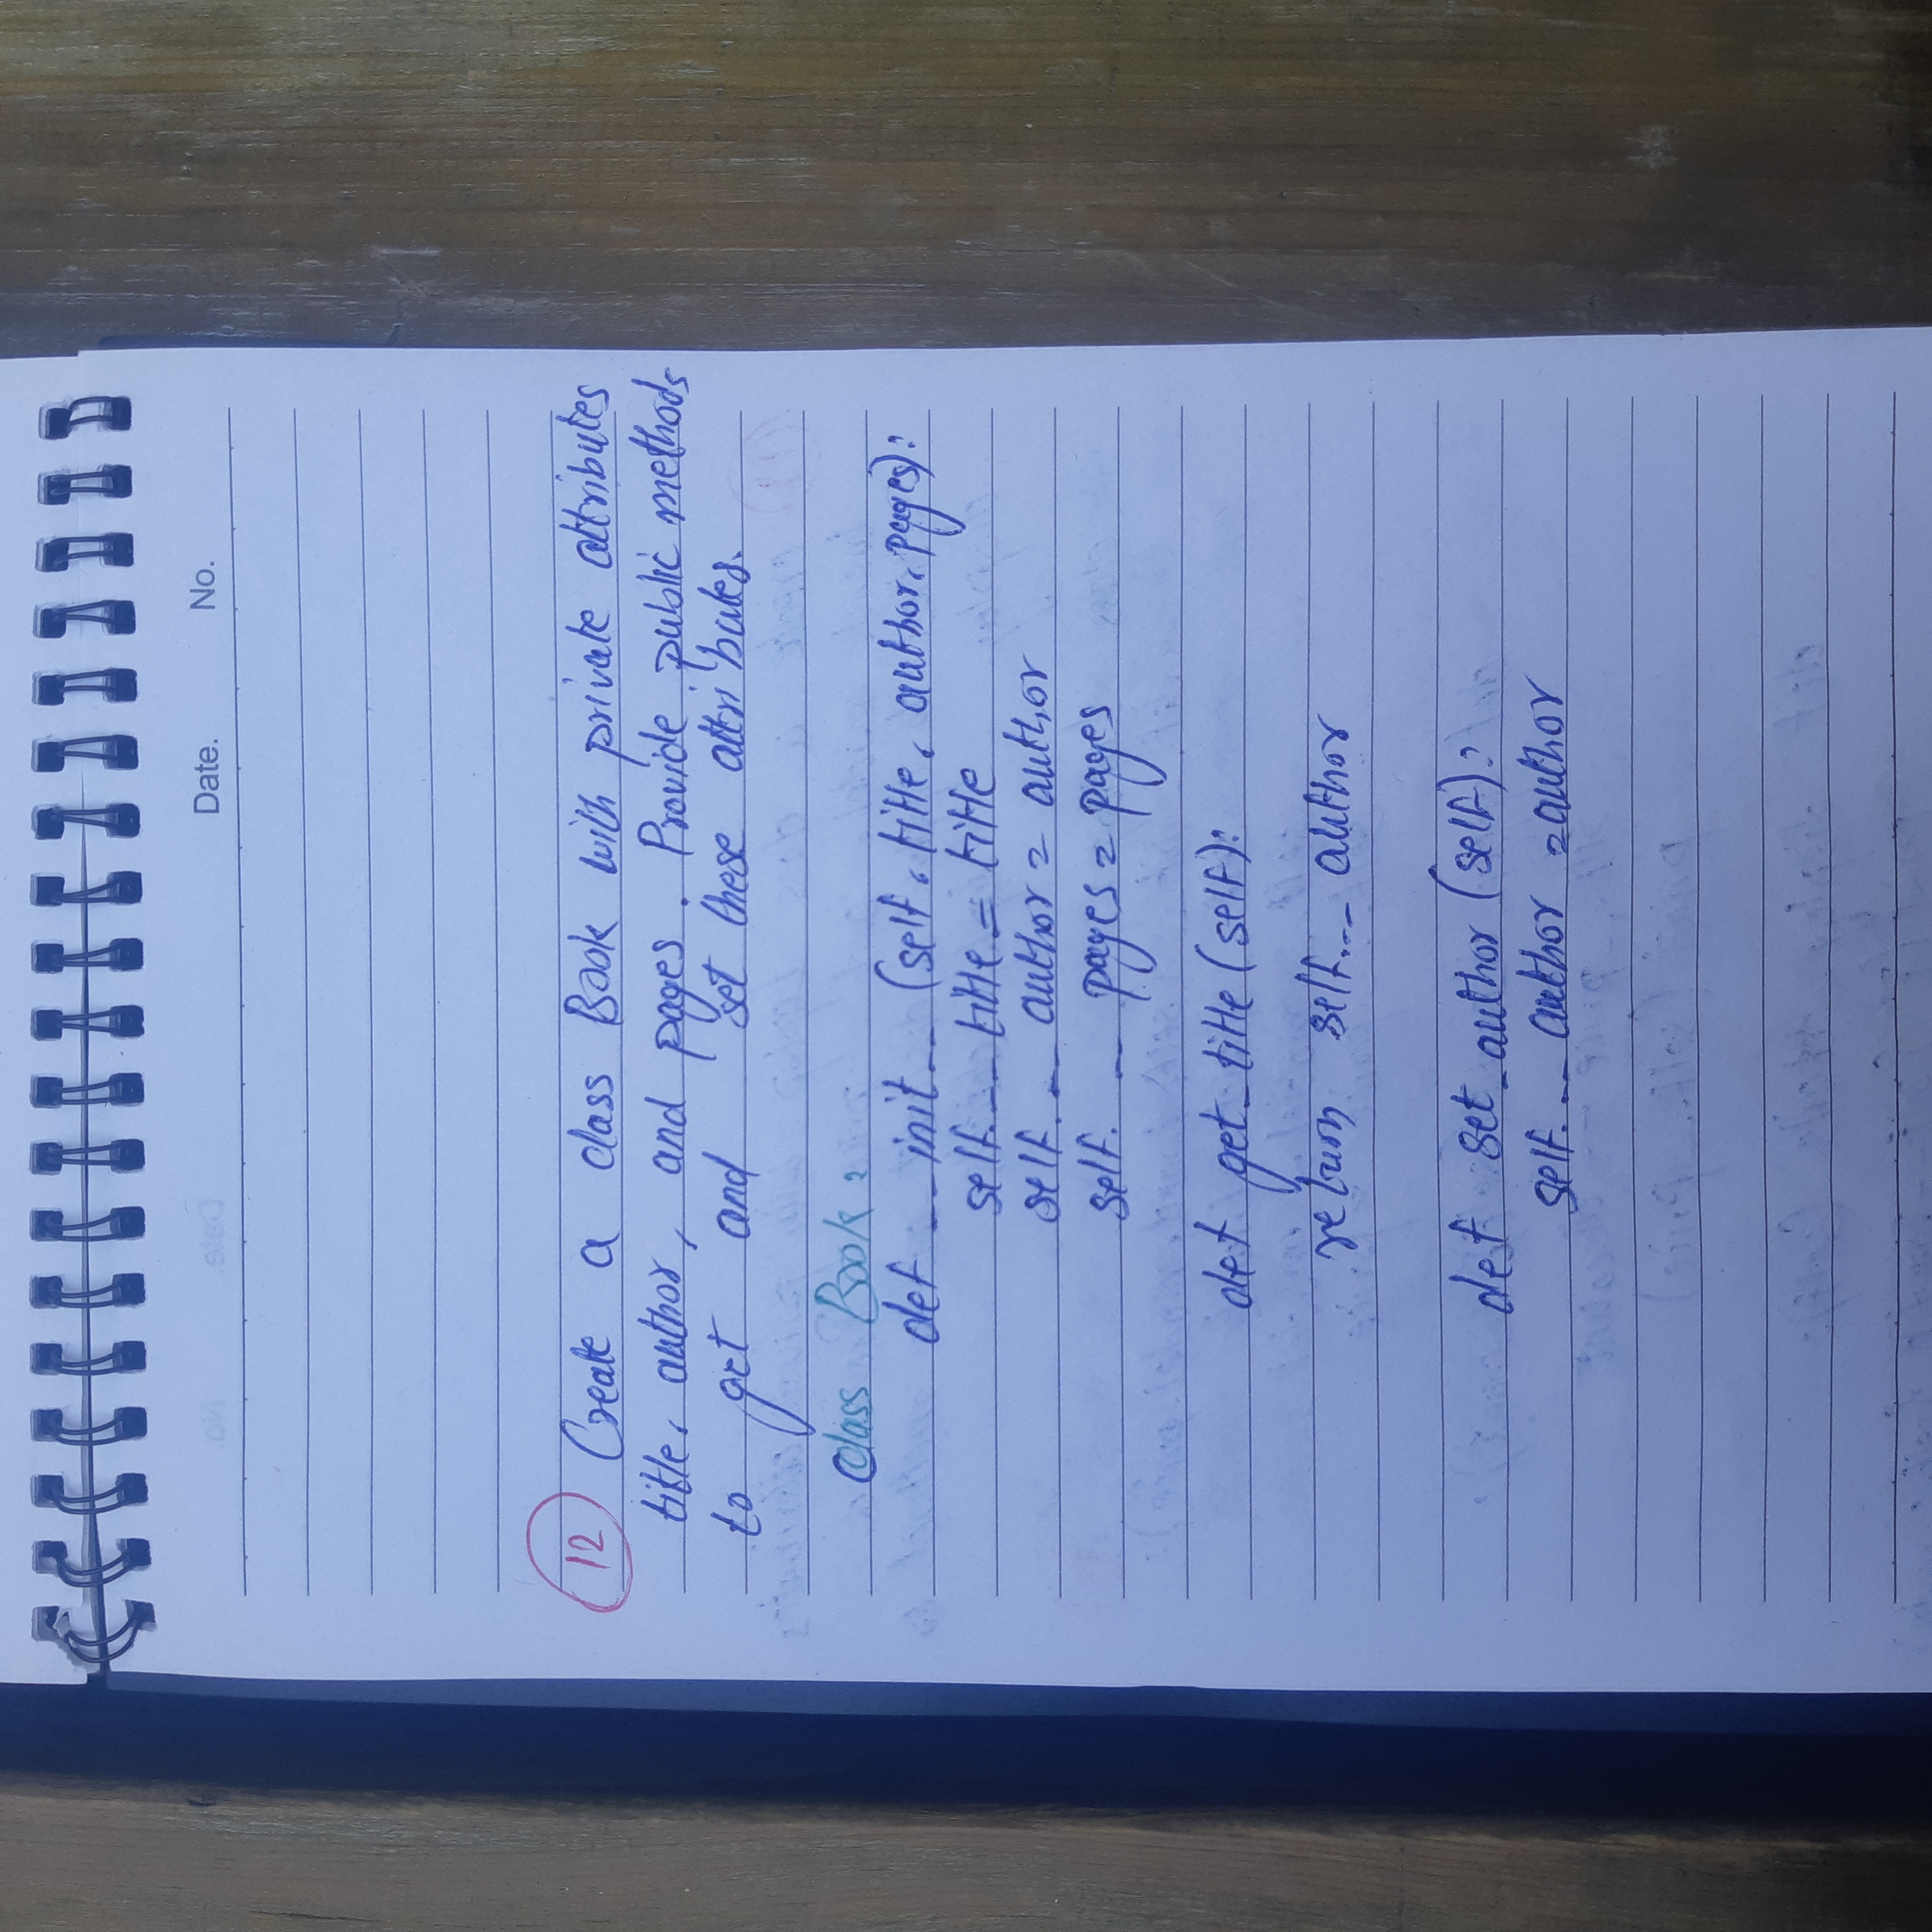 Date. No.
12 Create a class Book with private attributes
title, author, and pages. Provide public methods
to get and set these attributes.
class Book:
def __init__ (self, title, author, pages):
self.__title = title
self.__author = author
self.__pages = pages
def get_title (self):
return self.__author
def set_author (self):
self.__author = author